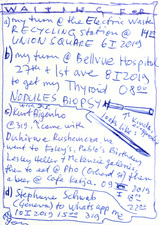 WAITING FOR
a) my turn @ the Electric Waste
RECYCLING station @ 14
UNION SQUARE 6I2019
b) my turn @ Bellvue Hospital
27th + 1st ave 8I2019
to get my Thyroid 0800
NODULES BIOPSY
c) Kurt Higenko
@ 319. I come with
went to Foley's, Pablo's Birthday
Lesley Heller + McKenzie galeries
then to eat @ Pho (Grand St) then
a beer @ Cafe Katja. 09 2019
d) Stephane Schwab
(Geneva) to whatsapp me
10I2019 1500 319